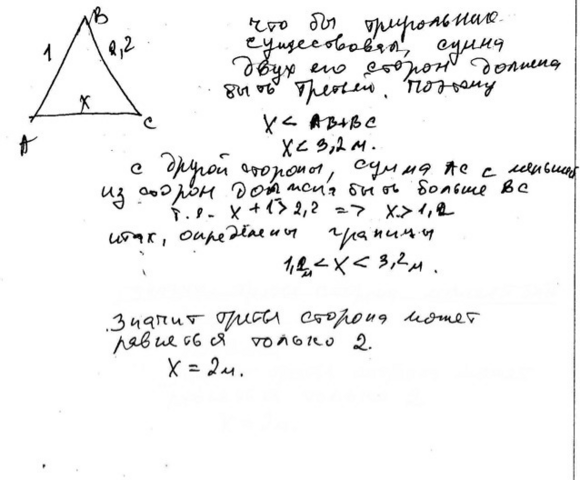 B
1
2,2
X
A
C
что бы треугольник
существовал, сумма
двух его сторон должна
быть третьей. Поэтому
X < AB+BC
X < 3,2 м.
с другой стороны, сумма AC с меньшей
из сторон должна быть больше BC
т.е. X + 1 > 2,2 => X > 1,2
итак, определены границы
1,2 м < X < 3,2 м.
Значит третья сторона может
равняться только 2.
X = 2 м.